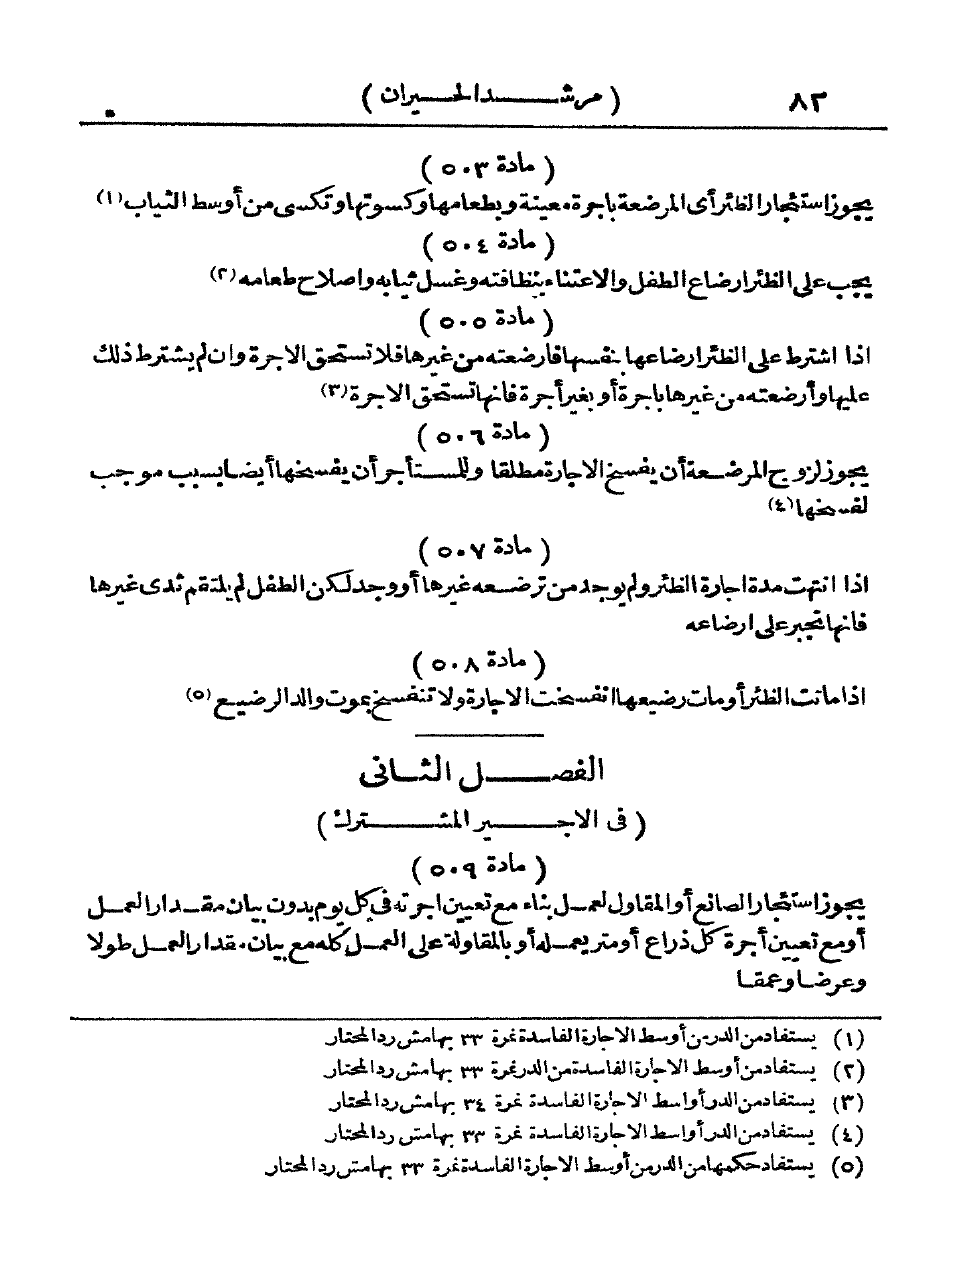 ٨٢ (مرشد الحيران)
(مادة ٥٠٣)
يجوز استئجار الظئر أى المرضعة باجرة معينة وبطعامها وكسوتها وتكسى من أوسط الثياب (١)
(مادة ٥٠٤)
يجب على الظئر ارضاع الطفل والاعتناء بنظافته وغسل ثيابه واصلاح طعامه (٢)
(مادة ٥٠٥)
اذا اشترط على الظئر ارضاعها بنفسها فارضعته من غيرها فلا تستحق الاجرة وان لم يشترط ذلك
عليها وأرضعته من غيرها باجرة أو بغير أجرة فانها تستحق الاجرة (٣)
(مادة ٥٠٦)
يجوز لزوج المرضعة أن يفسخ الاجارة مطلقا وللمستأجر أن يفسخها أيضا بسبب موجب
لفسخها (٤)
(مادة ٥٠٧)
اذا انتهت مدة اجارة الظئر ولم يوجد من ترضعه غيرها أو وجد لكن الطفل لم يلتقم ثدى غيرها
فانها تجبر على ارضاعه
(مادة ٥٠٨)
اذا ماتت الظئر أو مات رضيعها انفسخت الاجارة ولا تنفسخ بموت والد الرضيع (٥)
الفصل الثانى
(فى الاجير المشترك)
(مادة ٥٠٩)
يجوز استئجار الصانع أو المقاول لعمل بناء مع تعيين اجرته فى كل يوم بدون بيان مقدار العمل
أو مع تعيين أجرة كل ذراع أو متر يعمله أو بالمقاولة على العمل كله مع بيان مقدار العمل طولا
وعرضا وعمقا
(١) يستفاد من الدر من أوسط الاجارة الفاسدة نمرة ٣٣ بهامش رد المحتار
(٢) يستفاد من أوسط الاجارة الفاسدة من الدر نمرة ٣٣ بهامش رد المحتار
(٣) يستفاد من الدر أواسط الاجارة الفاسدة نمرة ٣٤ بهامش رد المحتار
(٤) يستفاد من الدر أواسط الاجارة الفاسدة نمرة ٣٣ بهامش رد المحتار
(٥) يستفاد حكمها من الدر من أوسط الاجارة الفاسدة نمرة ٣٣ بهامش رد المحتار